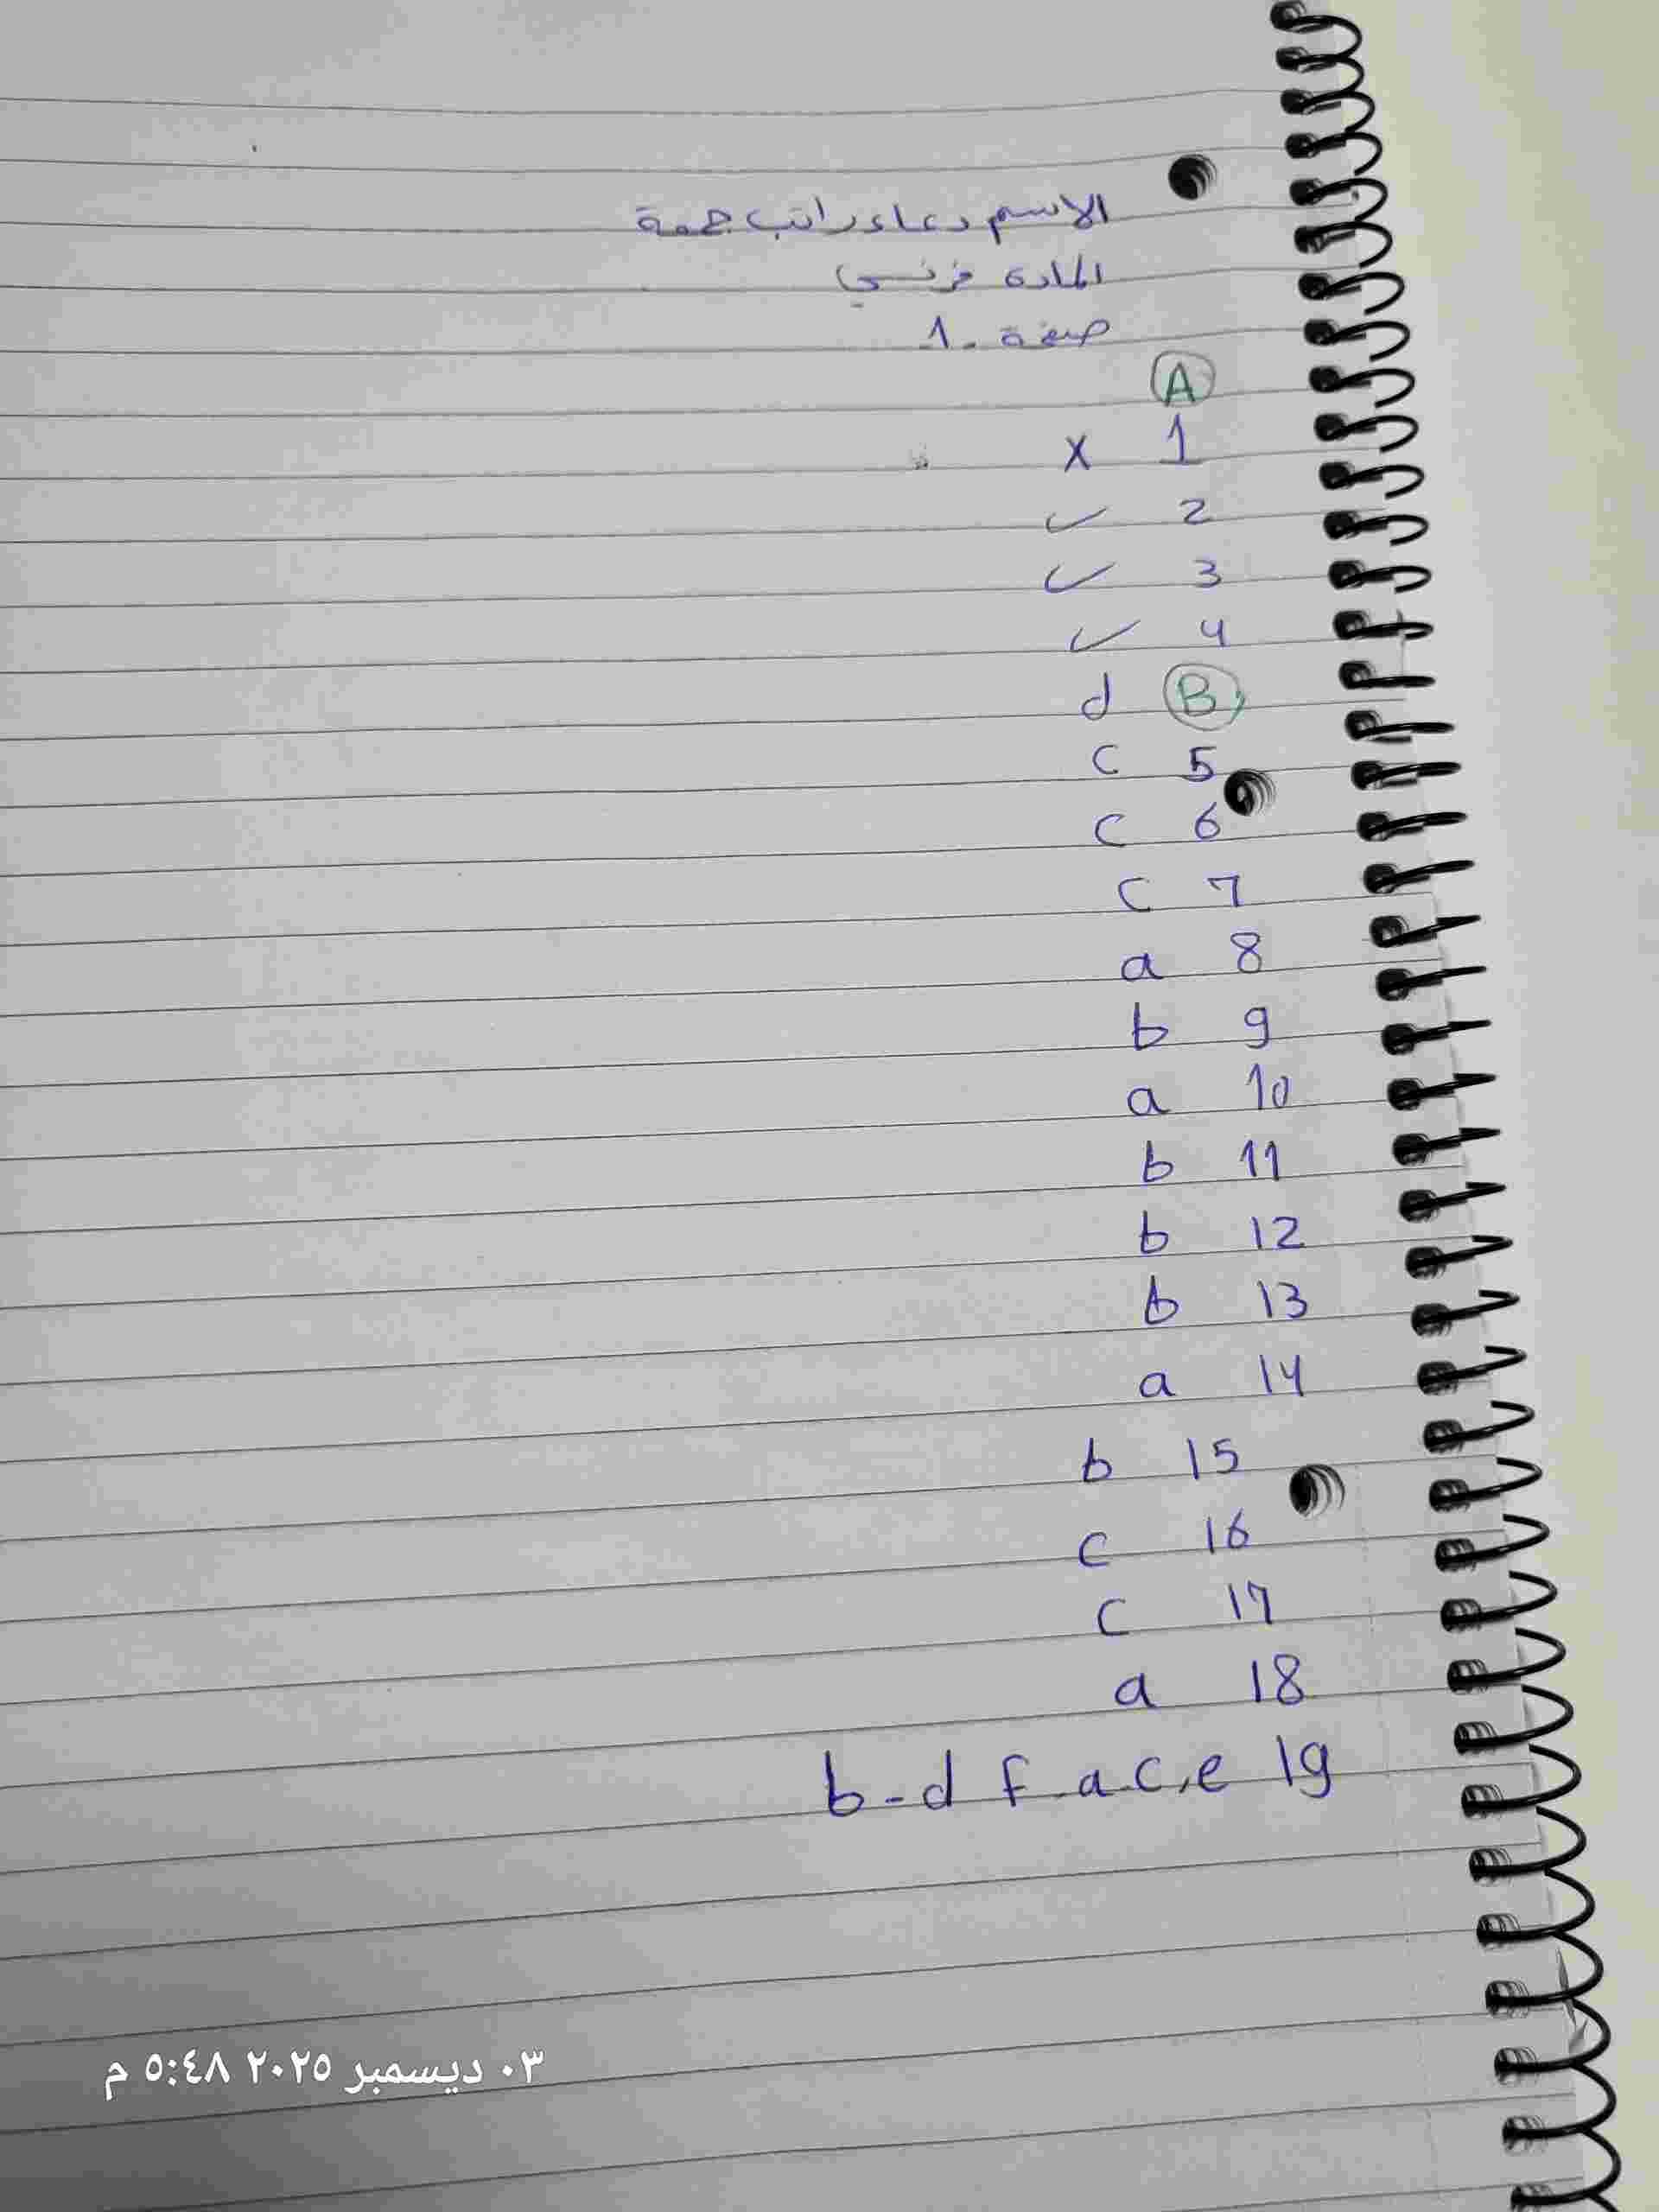 الاسم دعاء راتب جمعة
المادة فرنسي
صفحة 1
A
1 x
2 ✓
3 ✓
4 ✓
B d
5 c
6 c
7 c
8 a
9 b
10 a
11 b
12 b
13 b
14 a
15 b
16 c
17 c
18 a
19 e, c-a-f d-b
٠٣ ديسمبر ٢٠٢٥ ٥:٤٨ م